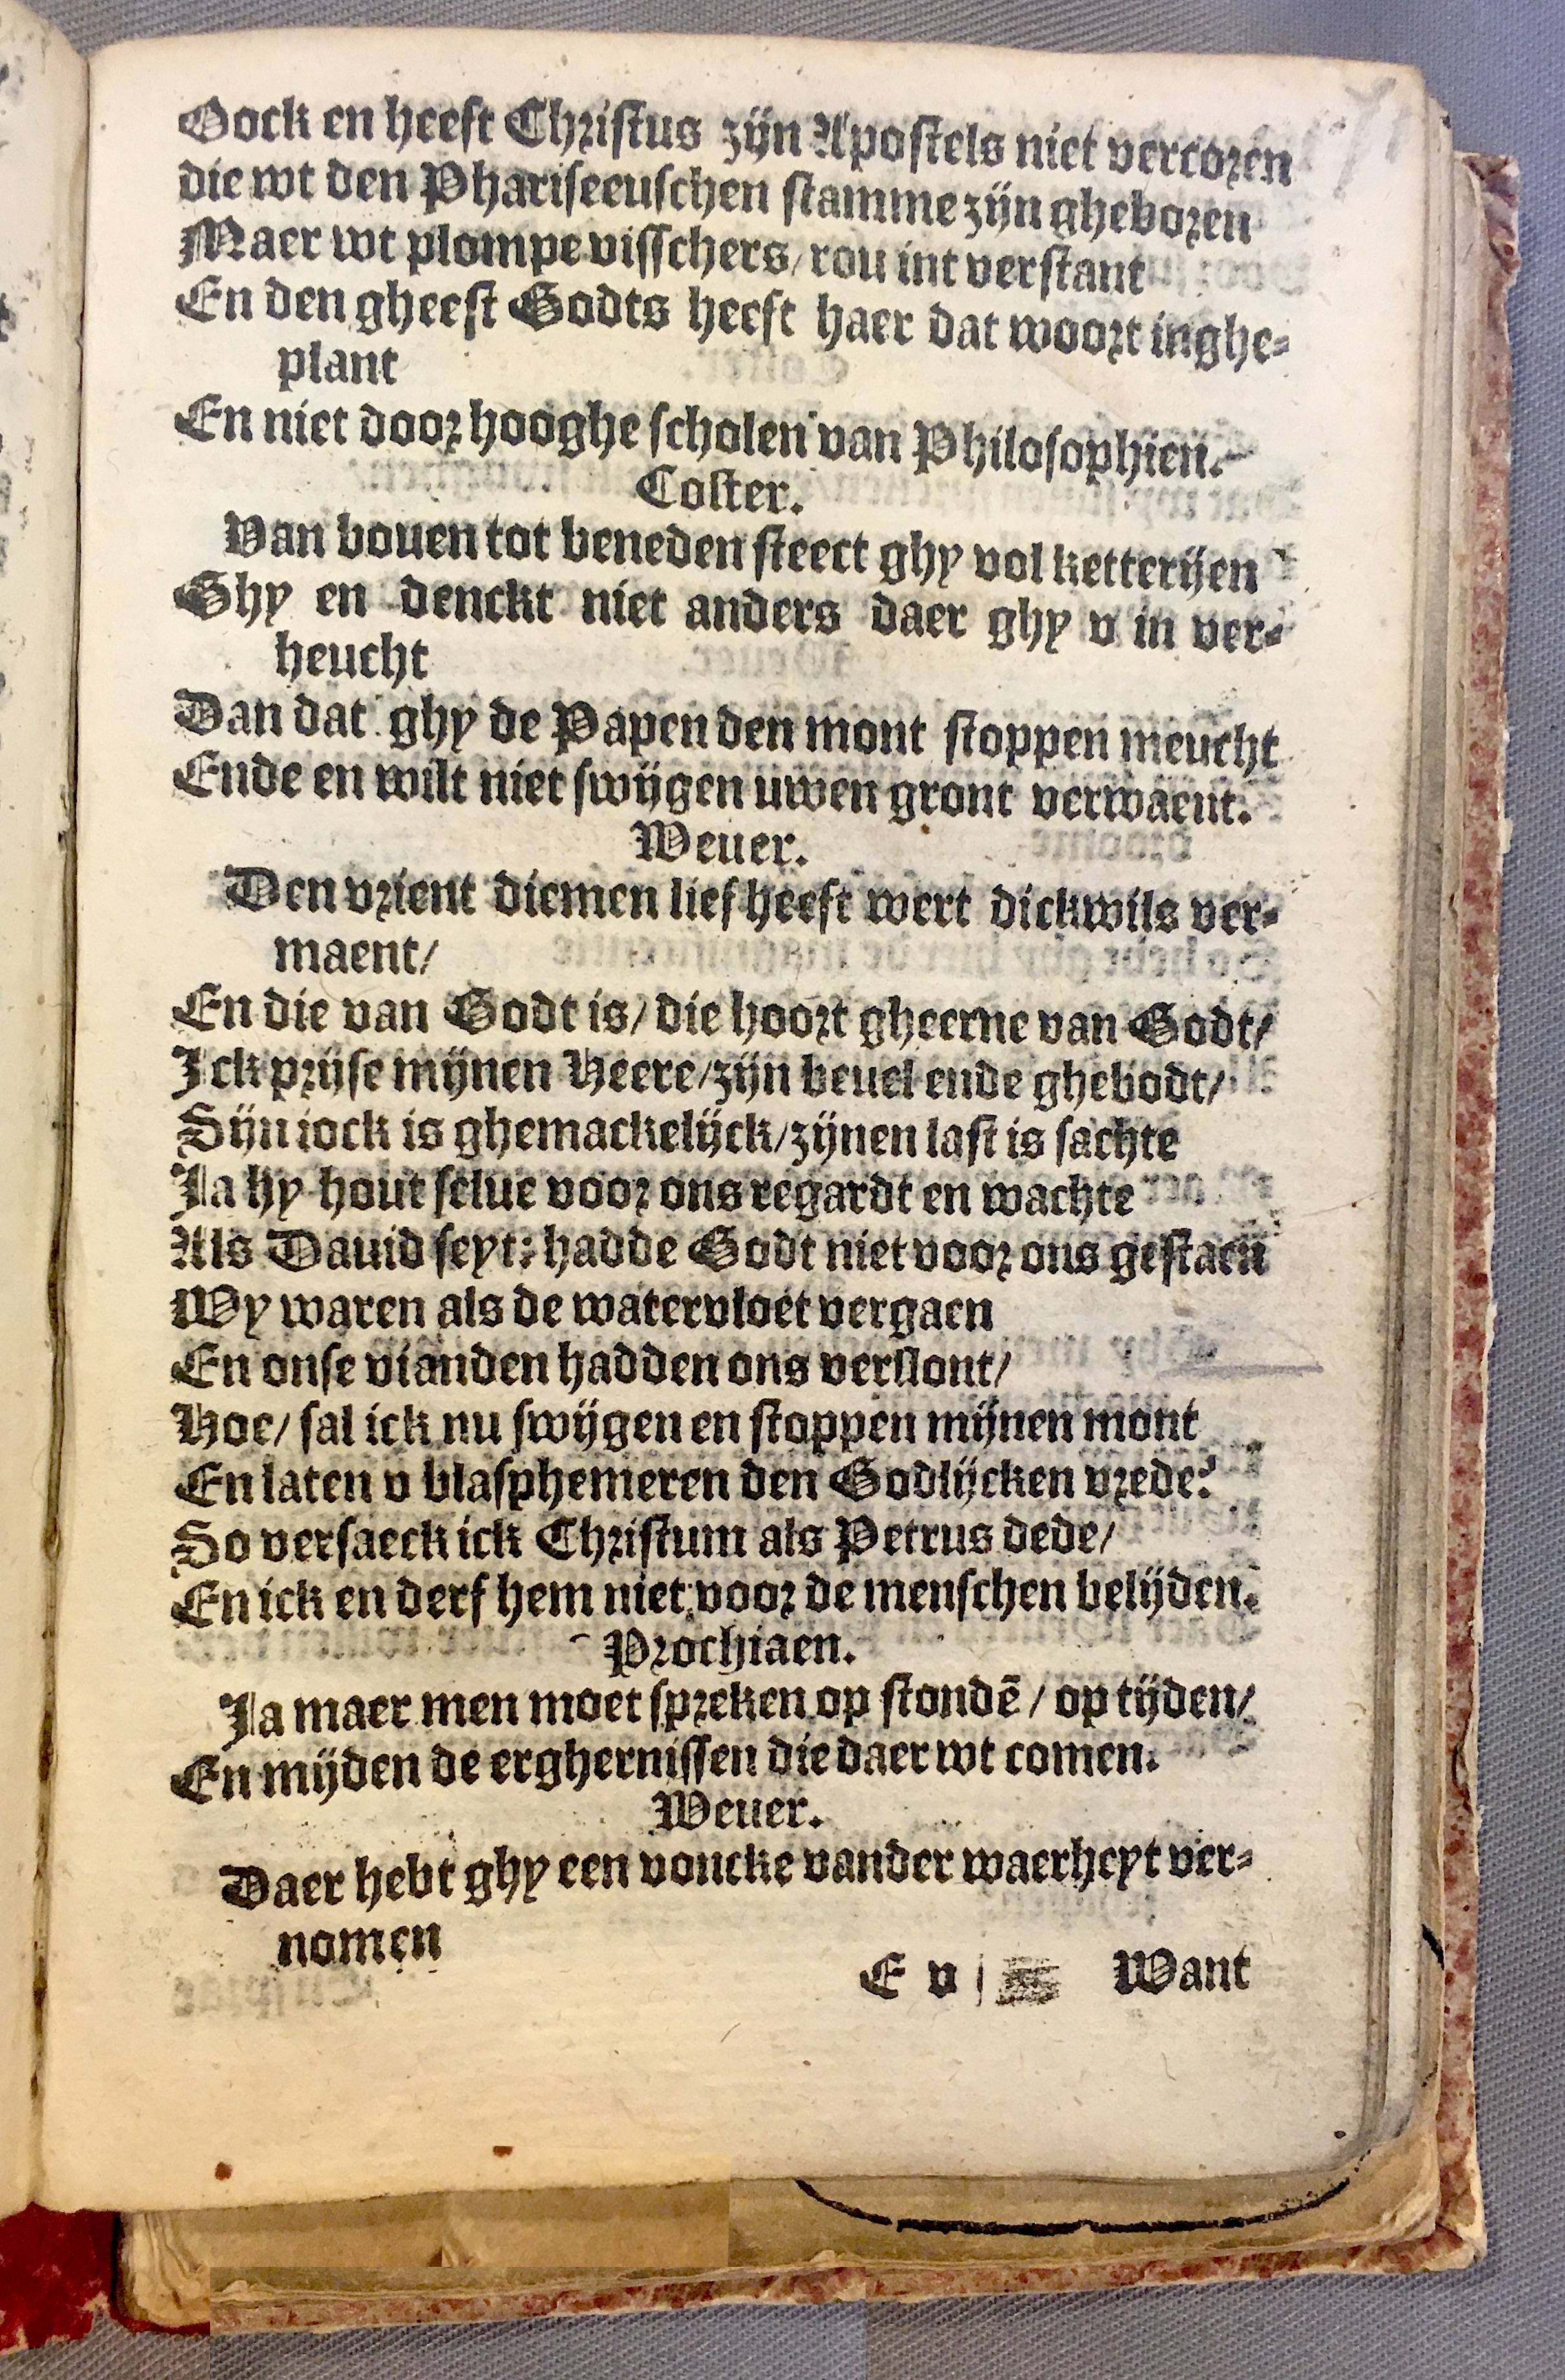 Oock en heeft Christus zijn Apostels niet vercoren
die wt den Phariseeuschen stamme zijn gheboren
Maer wt plompe visschers/rou int verstant
En den gheest Godts heeft haer dat woort inghe-
plant
En niet door hooghe scholen van Philosophien.
Coster.
Van bouen tot beneden steect ghy vol ketterijen
Ghy en denckt niet anders daer ghy v in ver-
heucht
Dan dat ghy de Papen den mont stoppen meucht
Ende en wilt niet swijgen uwen gront verwaent.
Weuer.
Den vrient diemen lief heeft wert dickwils ver-
maent/
En die van Godt is/die hoort gheerne van Godt/
Ick prijse mijnen Heere/zijn beuel ende ghebodt/
Sijn iock is ghemackelijck/zijnen last is sachte
Ja hy hout selue voor ons regardt en wachte
Als Dauid seyt: hadde Godt niet voor ons gestaen
Wy waren als de watervloet vergaen
En onse vianden hadden ons verslont/
Hoe/ sal ick nu swijgen en stoppen mijnen mont
En laten v blasphemeren den Godlijcken vrede?
So versaeck ick Christum als Petrus dede/
En ick en derf hem niet voor de menschen belijden.
Prochiaen.
Ja maer men moet spreken op stondē / op tijden/
En mijden de erghernissen die daer wt comen.
Weuer.
Daer hebt ghy een voncke vander waerheyt ver-
nomen
E v Want